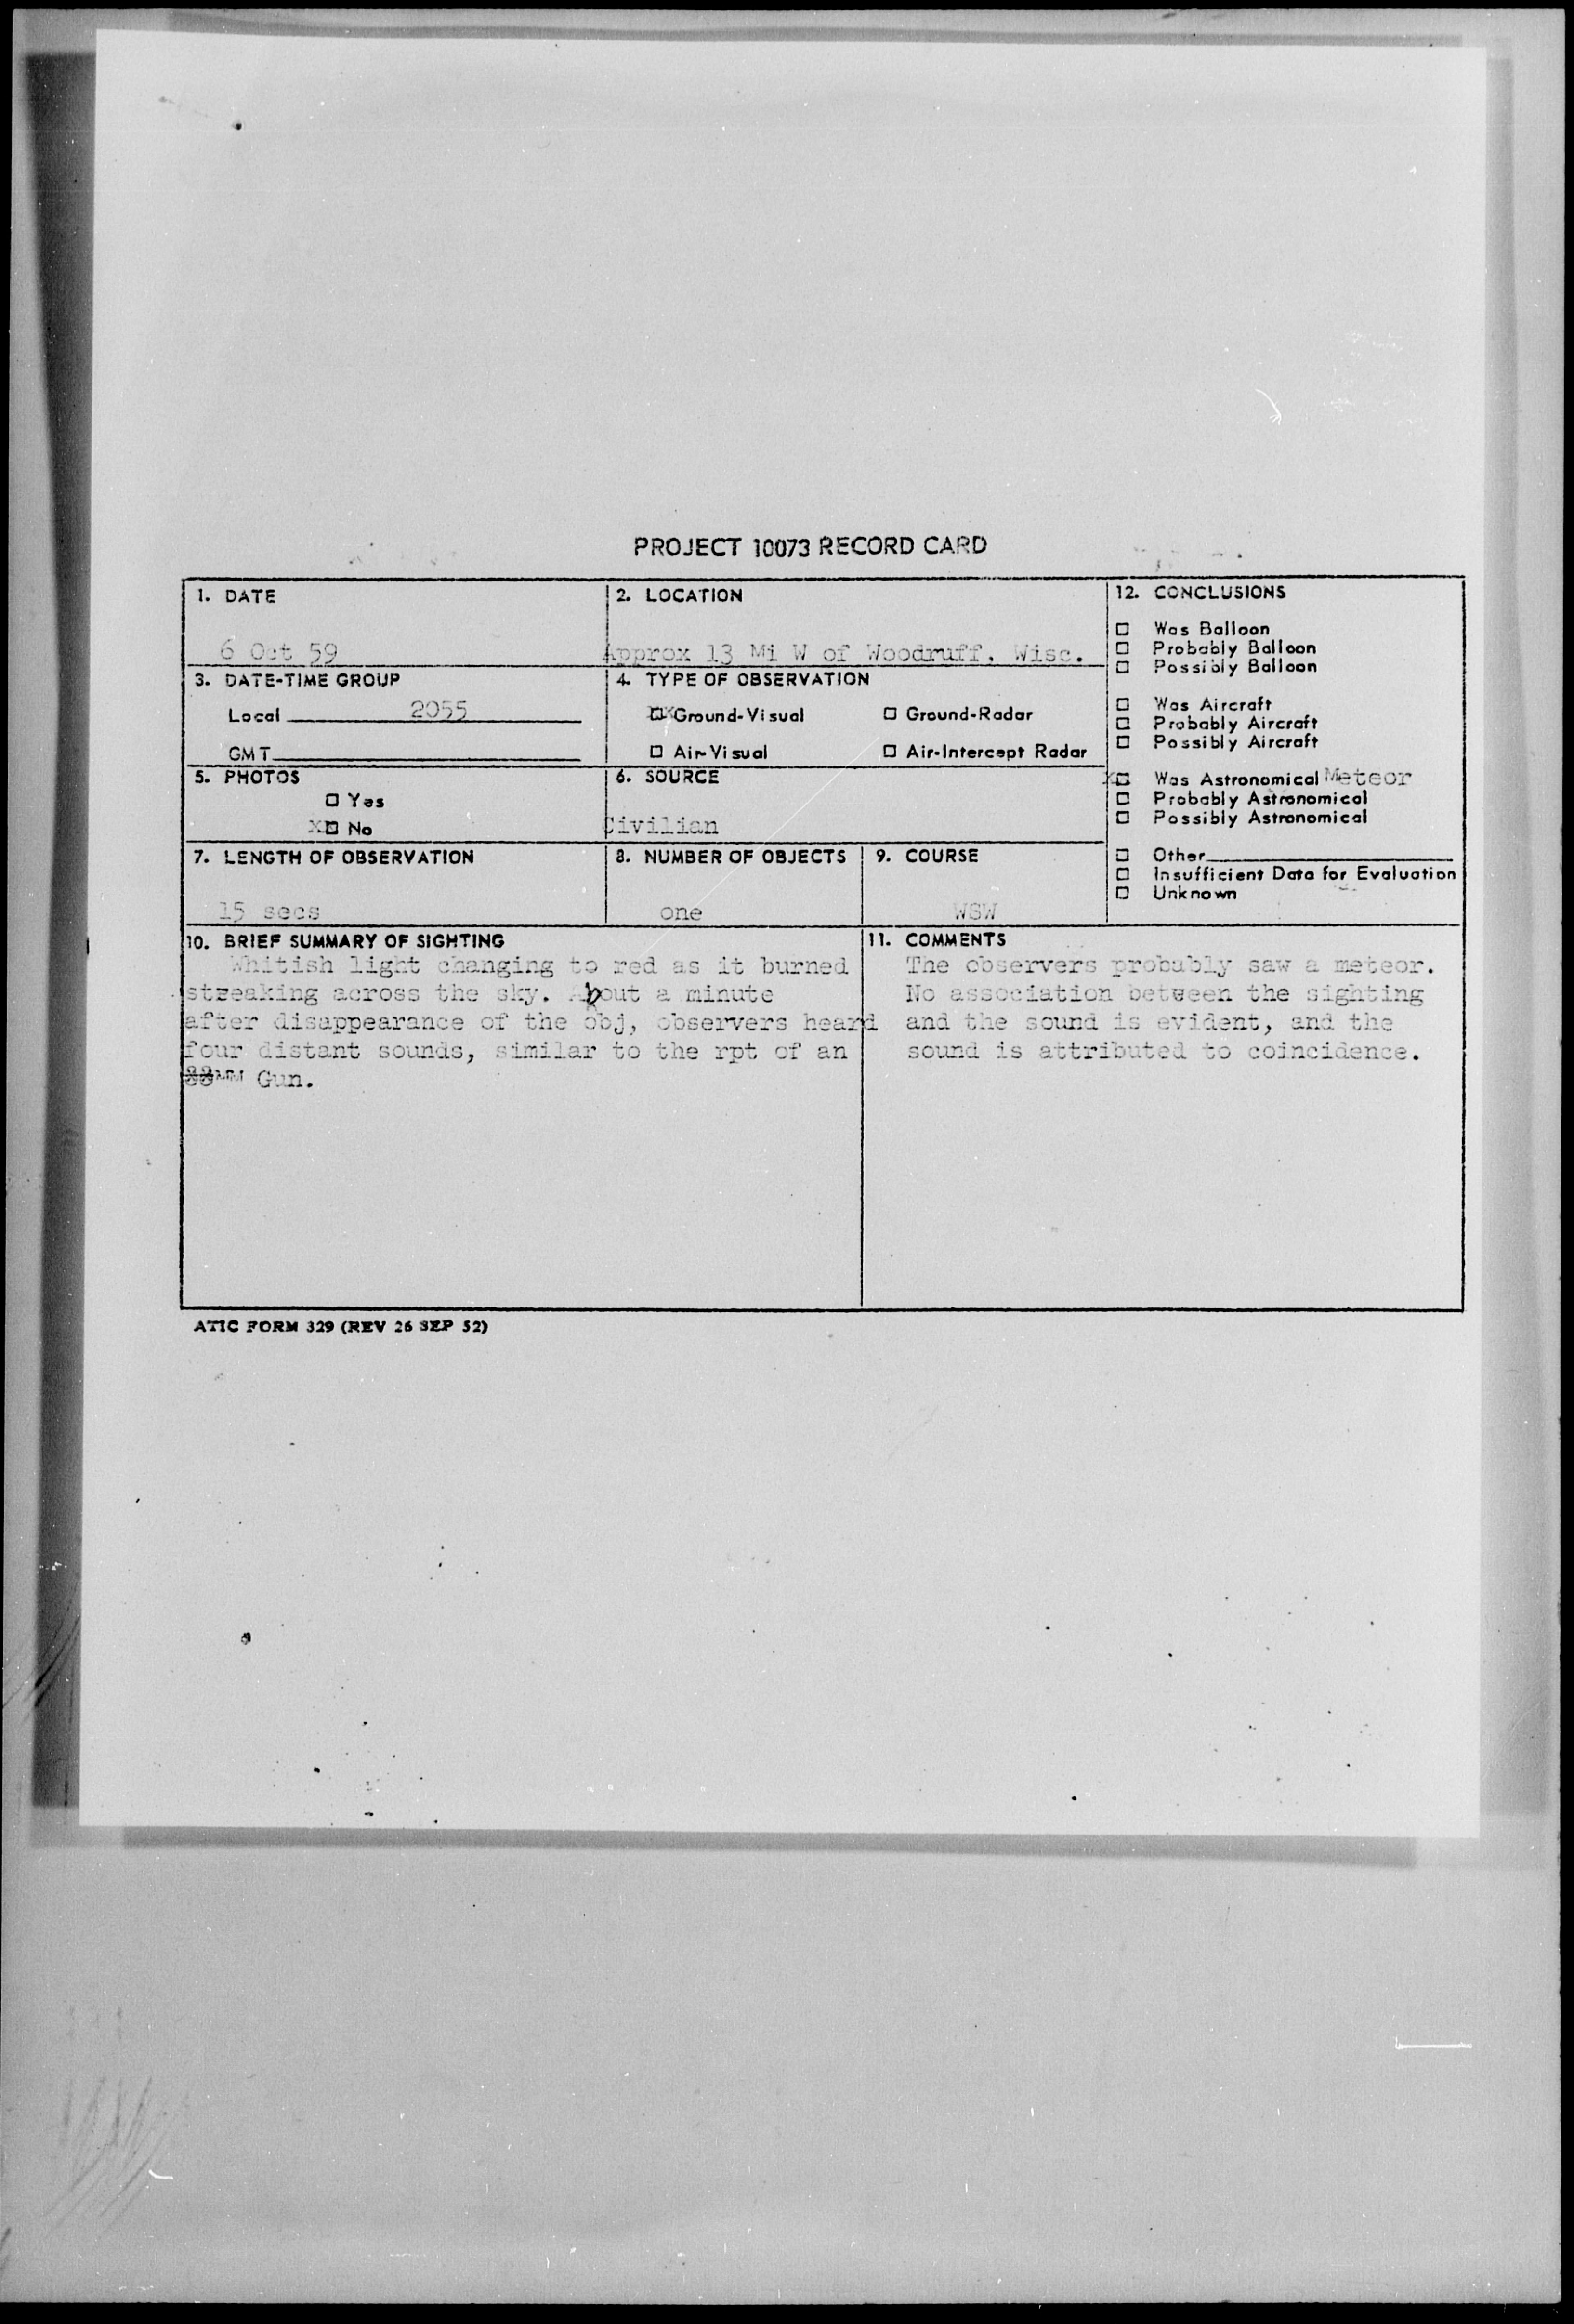 PROJECT 10073 RECORD CARD
1. DATE
6 Oct 59
2. LOCATION
Approx 13 Mi W of Woodruff, Wisc.
3. DATE-TIME GROUP
Local 2055
GMT
4. TYPE OF OBSERVATION
xx Ground-Visual
Ground-Radar
Air-Visual
Air-Intercept Radar
5. PHOTOS
Yes
x No
6. SOURCE
Civilian
7. LENGTH OF OBSERVATION
15 secs
8. NUMBER OF OBJECTS
one
9. COURSE
WSW
10. BRIEF SUMMARY OF SIGHTING
Whitish light changing to red as it burned
streaking across the sky. About a minute
after disappearance of the obj, observers heard
four distant sounds, similar to the rpt of an
MM Gun.
11. COMMENTS
The observers probably saw a meteor.
No association between the sighting
and the sound is evident, and the
sound is attributed to coincidence.
12. CONCLUSIONS
Was Balloon
Probably Balloon
Possibly Balloon
Was Aircraft
Probably Aircraft
Possibly Aircraft
x Was Astronomical Meteor
Probably Astronomical
Possibly Astronomical
Other
Insufficient Data for Evaluation
Unknown
ATIC FORM 329 (REV 26 SEP 52)